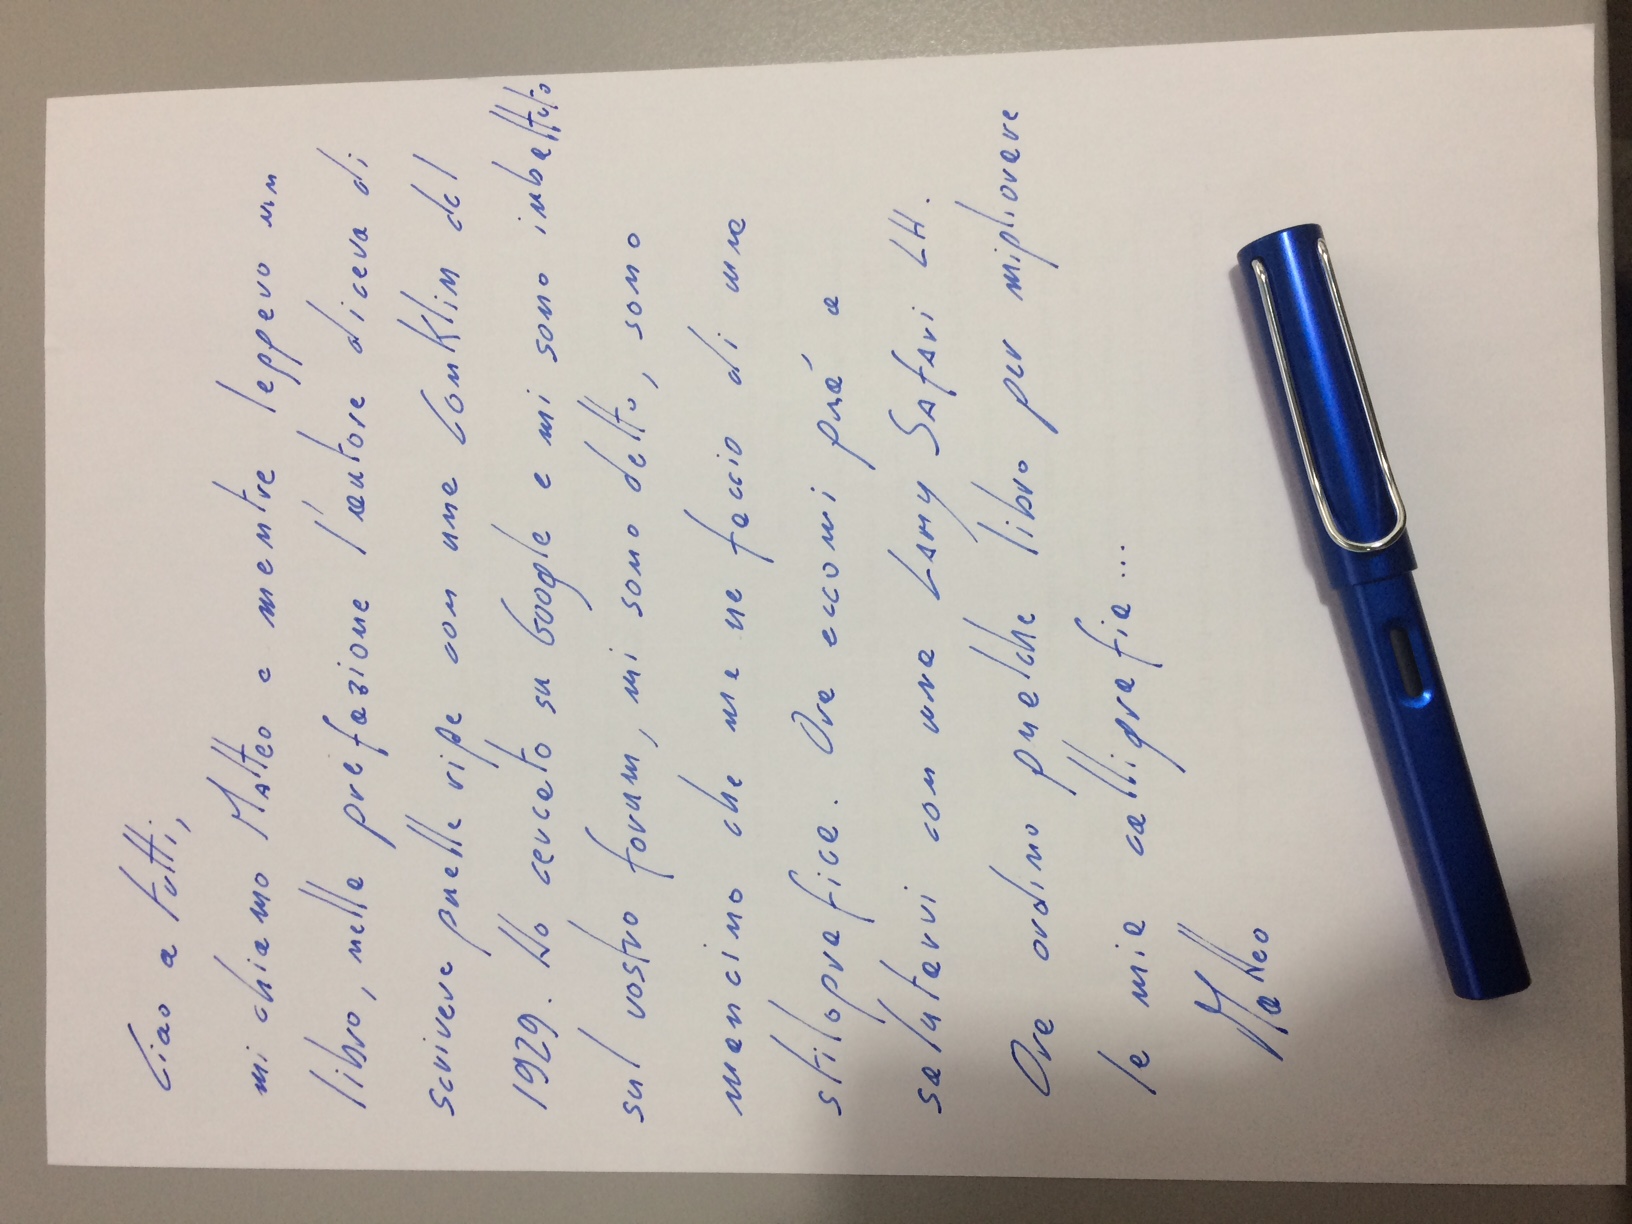 Ciao a tutti,
mi chiamo Matteo e mentre leggevo un
libro, nella prefazione l'autore diceva di
scrivere quelle righe con una Conklin del
1929. Ho cercato su Google e mi sono imbattuto
sul vostro forum, mi sono detto, sono
mancino che me ne faccio di una
stilografica. Ora eccomi quá a
salutarvi con una LAMY SAfAri LH.
Ora ordino qualche libro per migliorare
la mia calligrafia...
Matteo